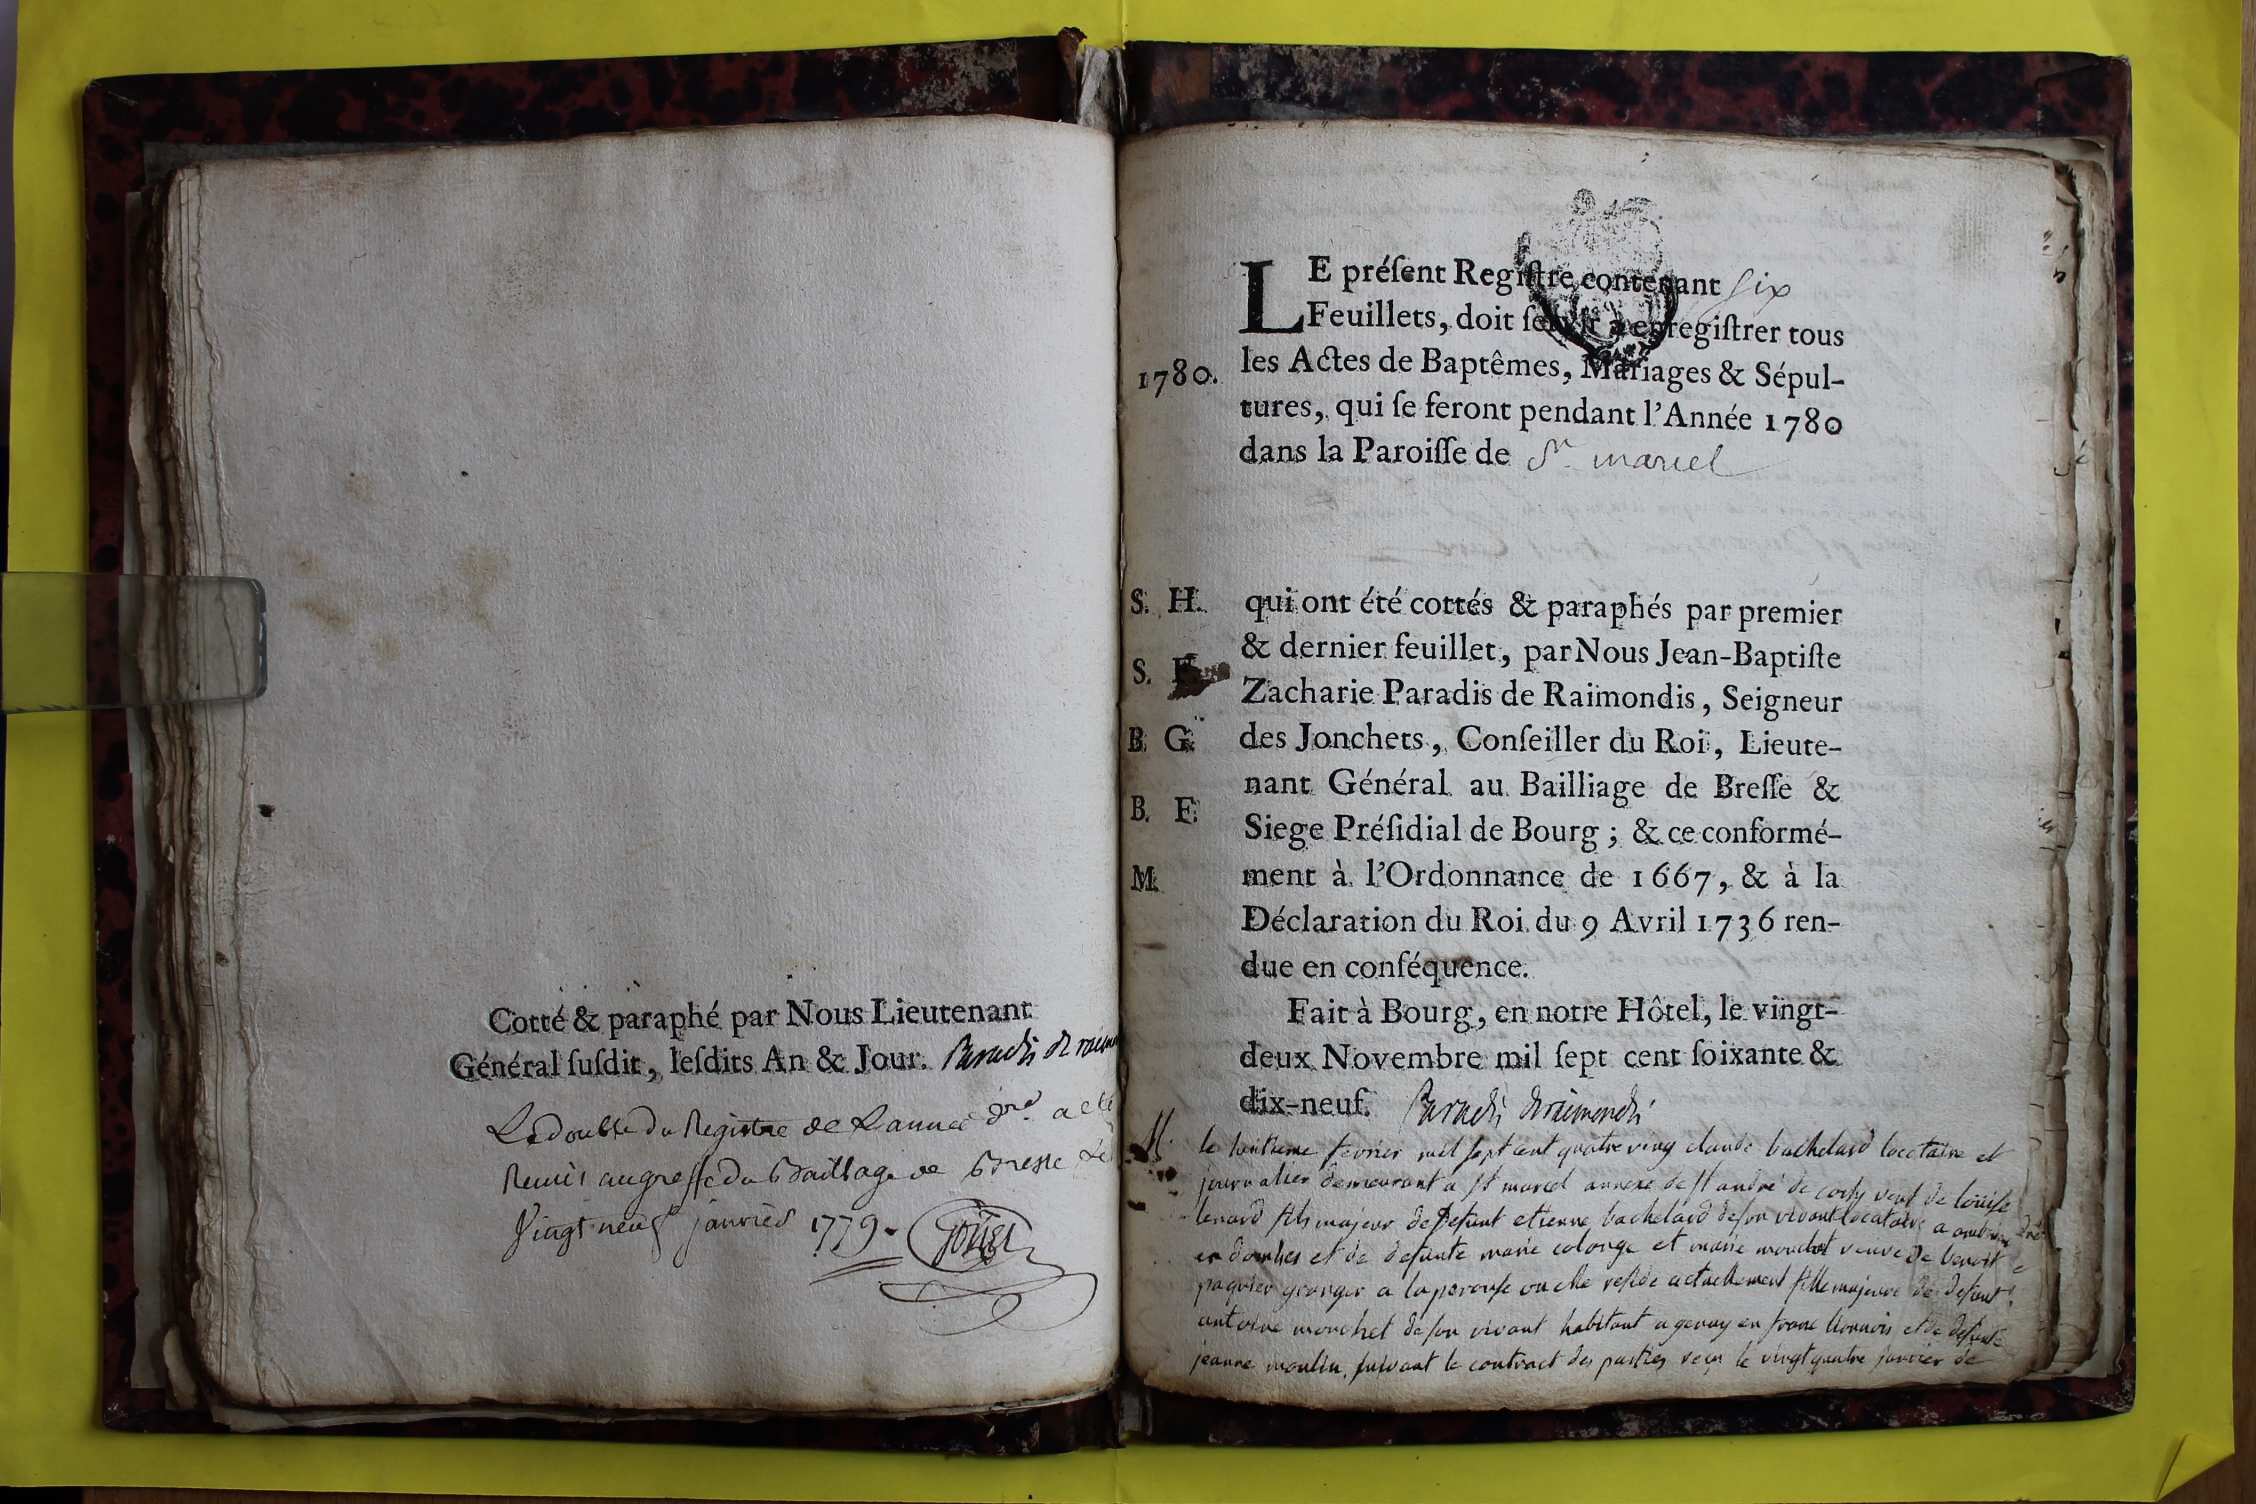 Cotté & paraphé par Nous Lieutenant
Général ſuſdit, leſdits An & Jour. Paradis de raimon
Le double du Registre de L'année dre a eté
Remis au greffe du Bailliage de Bresse Le
Vingt neuf janvier 1779.
LE préſent Regiſtre contenant ſix
Feuillets, doit ſervir à enregiſtrer tous
1780.
les Actes de Baptêmes, Mariages & Sépul-
tures, qui ſe feront pendant l'Année 1780
dans la Paroiſſe de St. marcel
S. H.
qui ont été cottés & paraphés par premier
& dernier feuillet, par Nous Jean-Baptiſte
S. F.
Zacharie Paradis de Raimondis, Seigneur
B. G.
des Jonchets, Conſeiller du Roi, Lieute-
nant Général au Bailliage de Breſſe &
B. F.
Siege Préſidial de Bourg ; & ce conformé-
M.
ment à l'Ordonnance de 1667, & à la
Déclaration du Roi du 9 Avril 1736 ren-
due en conſéquence.
Fait à Bourg, en notre Hôtel, le vingt-
deux Novembre mil ſept cent ſoixante &
dix-neuf. Paradis de raimondis
M.
le huitieme fevrier mil sept cent quatre ving claude bachelard locataire et
journalier demeurant a st marcel annexe de st andré de corsy veuf de louise
lenard fils majeur de defunt etienne bachelard de son vivant locataire a
en dombes et de defunte marie colonge et marie monchet veuve de benoit
paquier granger a laperouse ou elle reside actuellement fille majeure de defunt
antoine monchet de son vivant habitant a genay en franc lionnois et de defunte
jeanne moulin, suivant le contract des parties reçu le vingt quatre janvier de